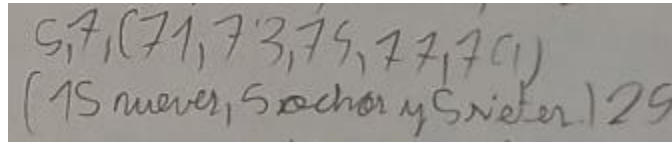 5,7,(71,73,75,77,79)
(15 nueves, 5 ochos y 5 sietes) 25